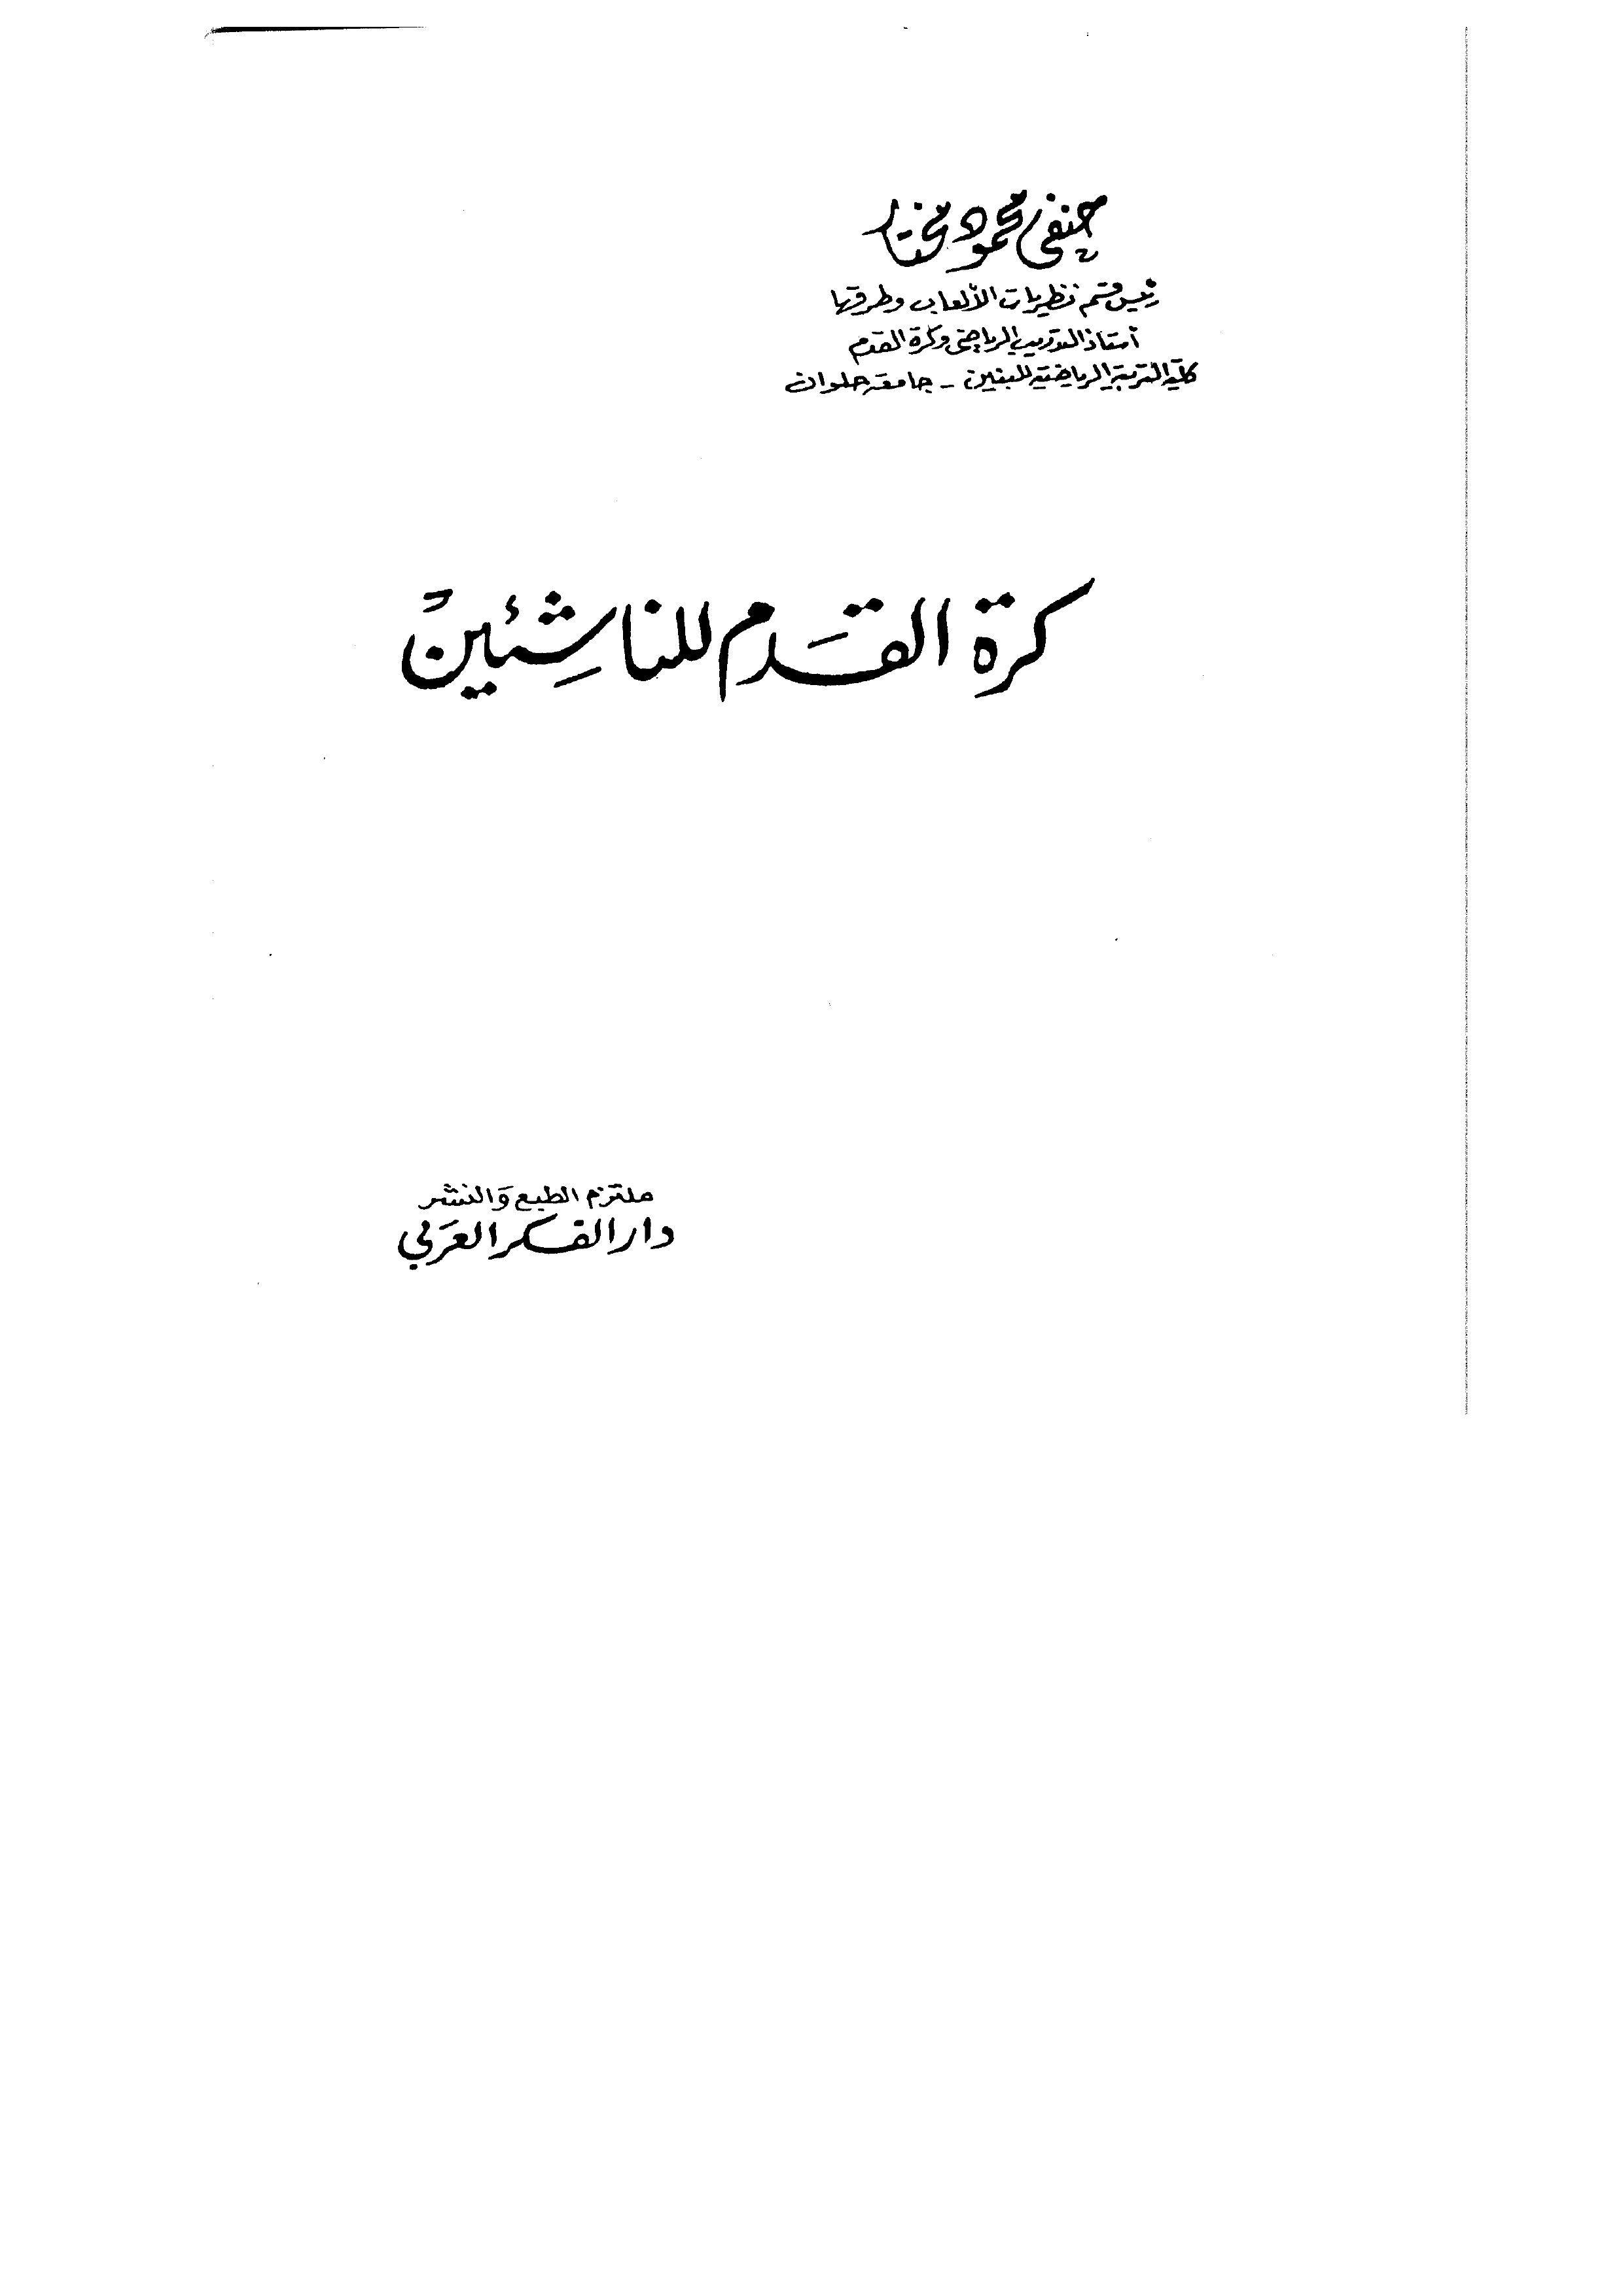 حنفى محمود مختار
رئيس قسم نظريات الألعاب وطرقها
أستاذ التدريب الرياضى وكرة القدم
كلية التربية الرياضية للبنين - جامعة حلوان
كرة القَدم للناشِئين
ملتزم الطبع وَالنشر
دار الفكر العَربي